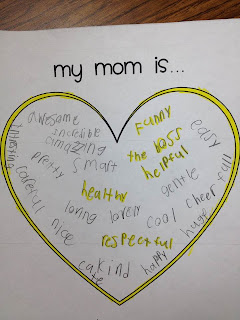 my mom is...
awesome
incredible
amazzing
pretty
smart
Funny
the boss
helpful
easy
intresting
careful
healthy
gentle
cheer full
loving
lovely
cool
huge
nice
respectful
happy
cute
kind